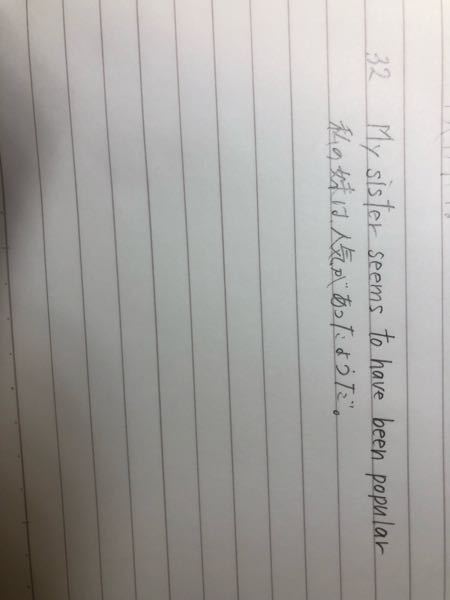 32 My sister seems to have been popular
私の妹は人気があったようだ。